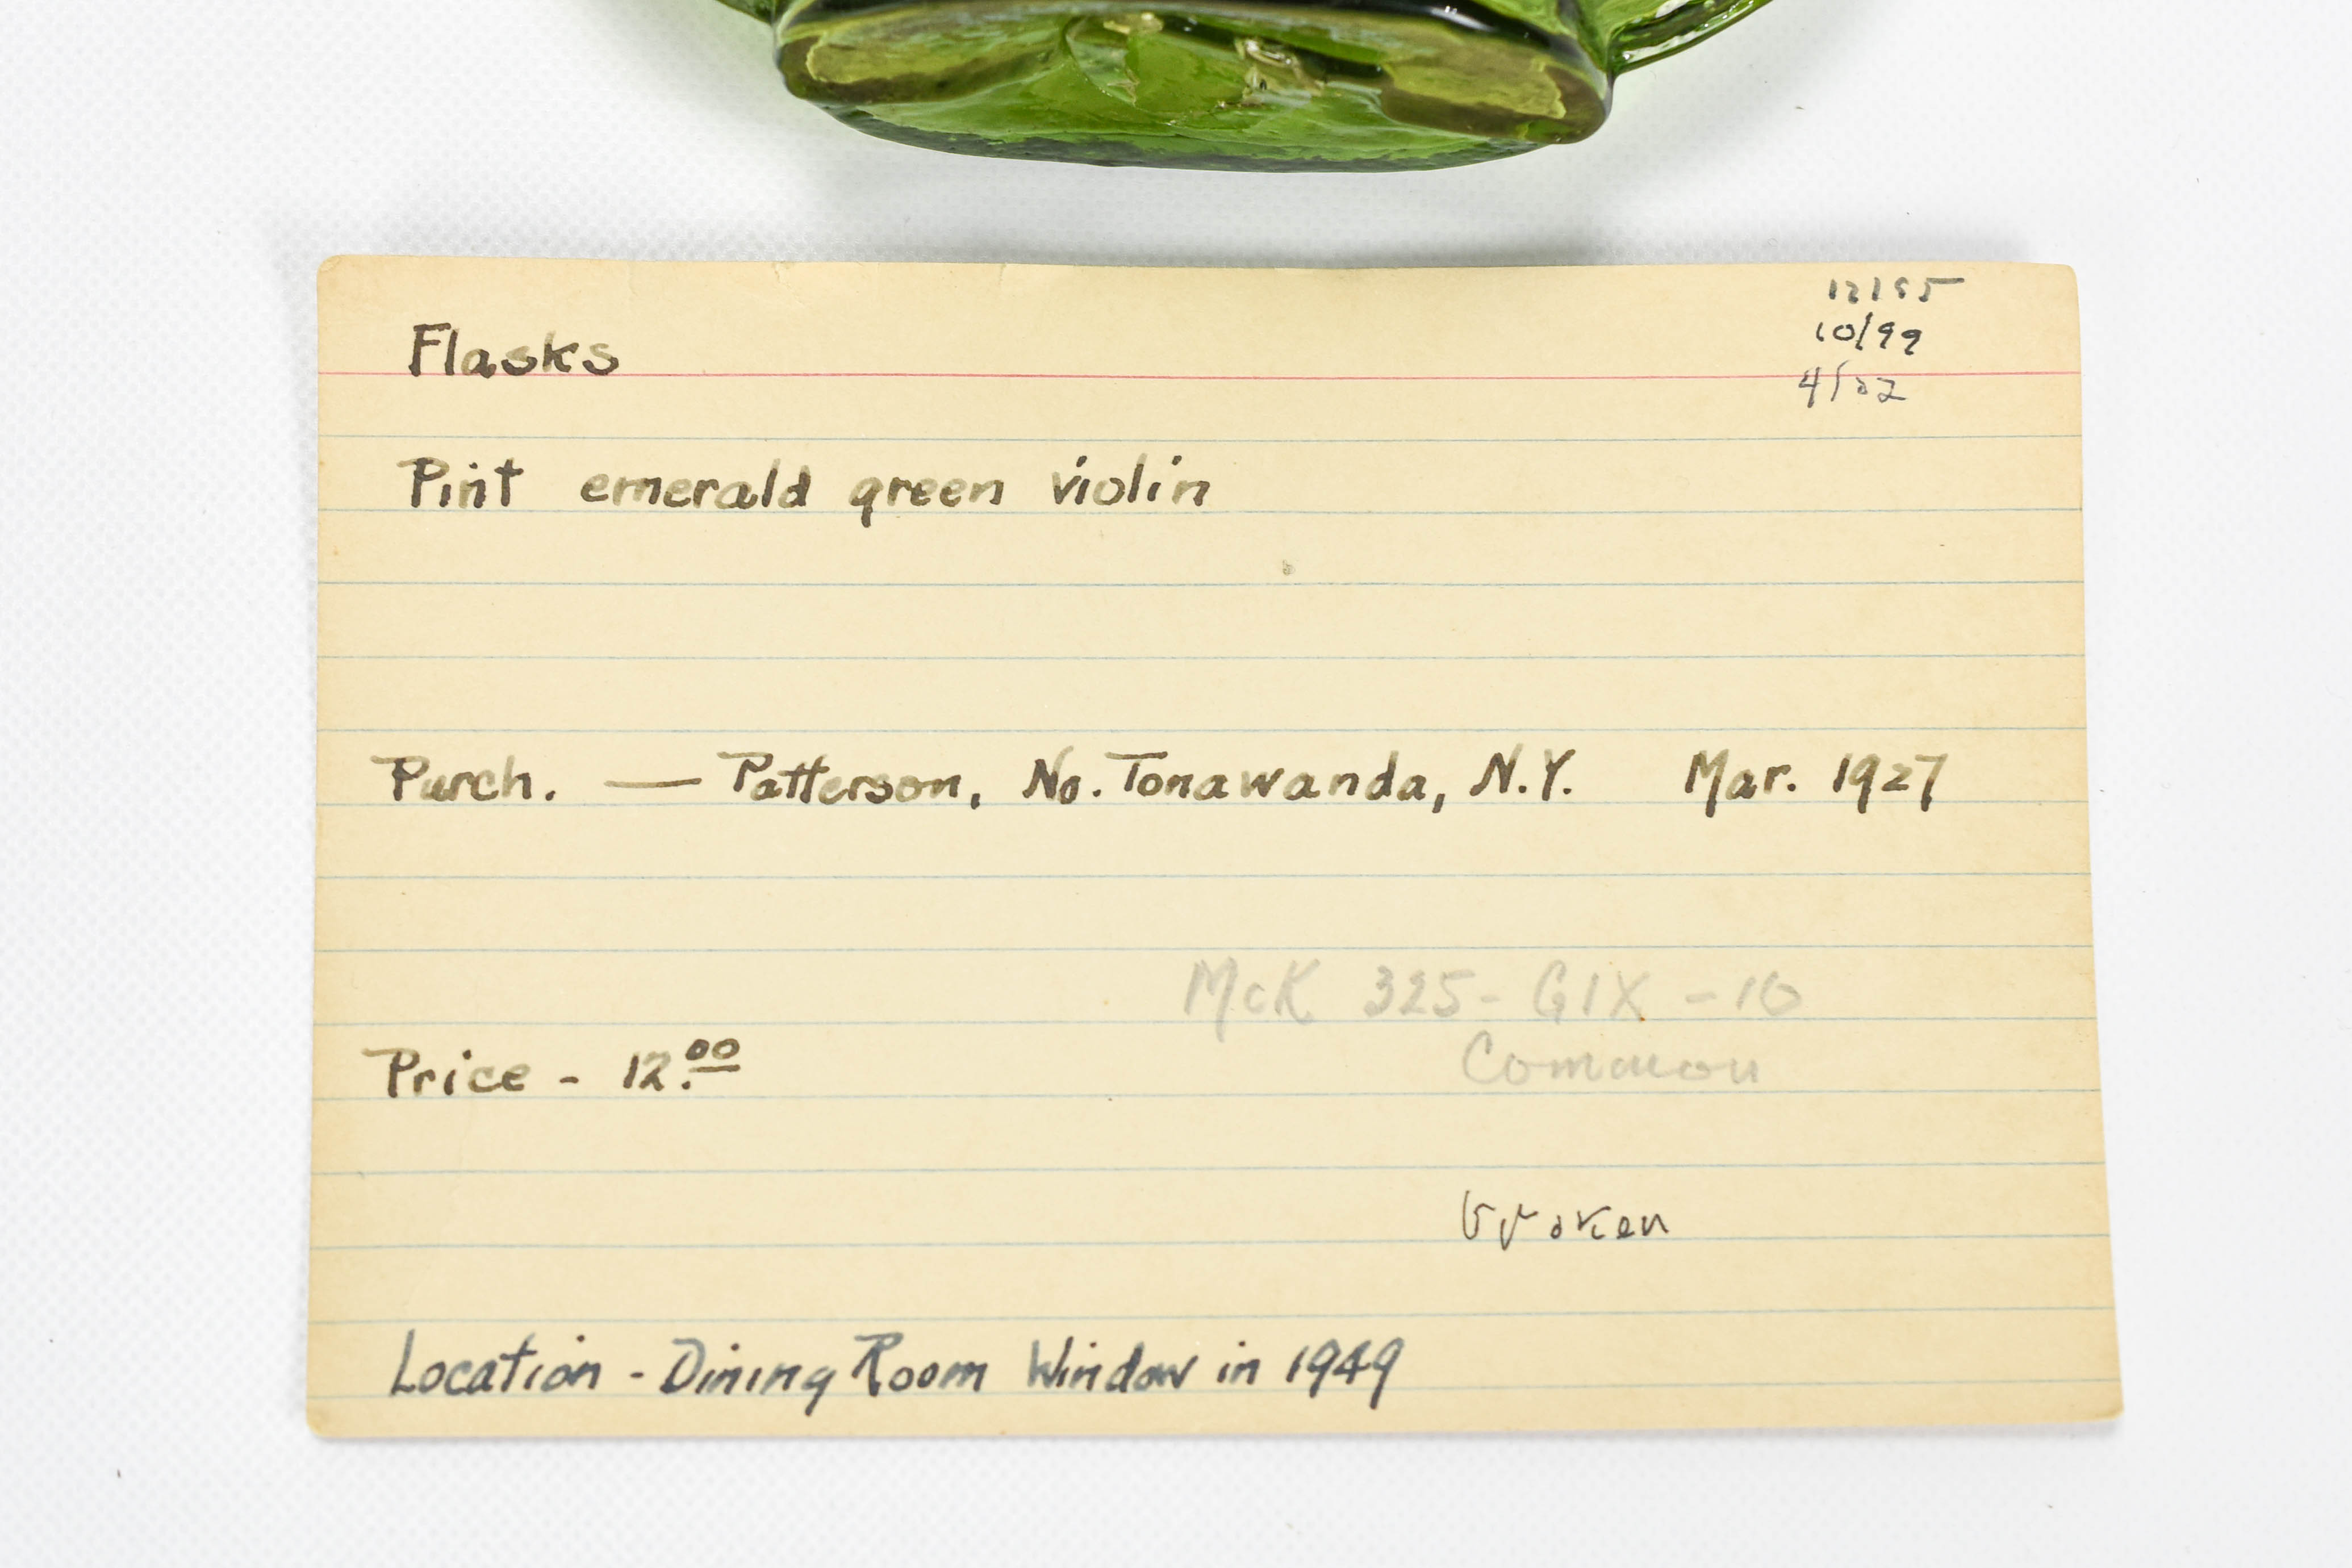 Flasks
10/99
4/02
Pint emerald green violin
Purch. — Patterson, No. Tonawanda, N.Y. Mar. 1927
McK 325 - GIX - 10
Common
Price - 12.00
broken
Location - Dining Room Window in 1949